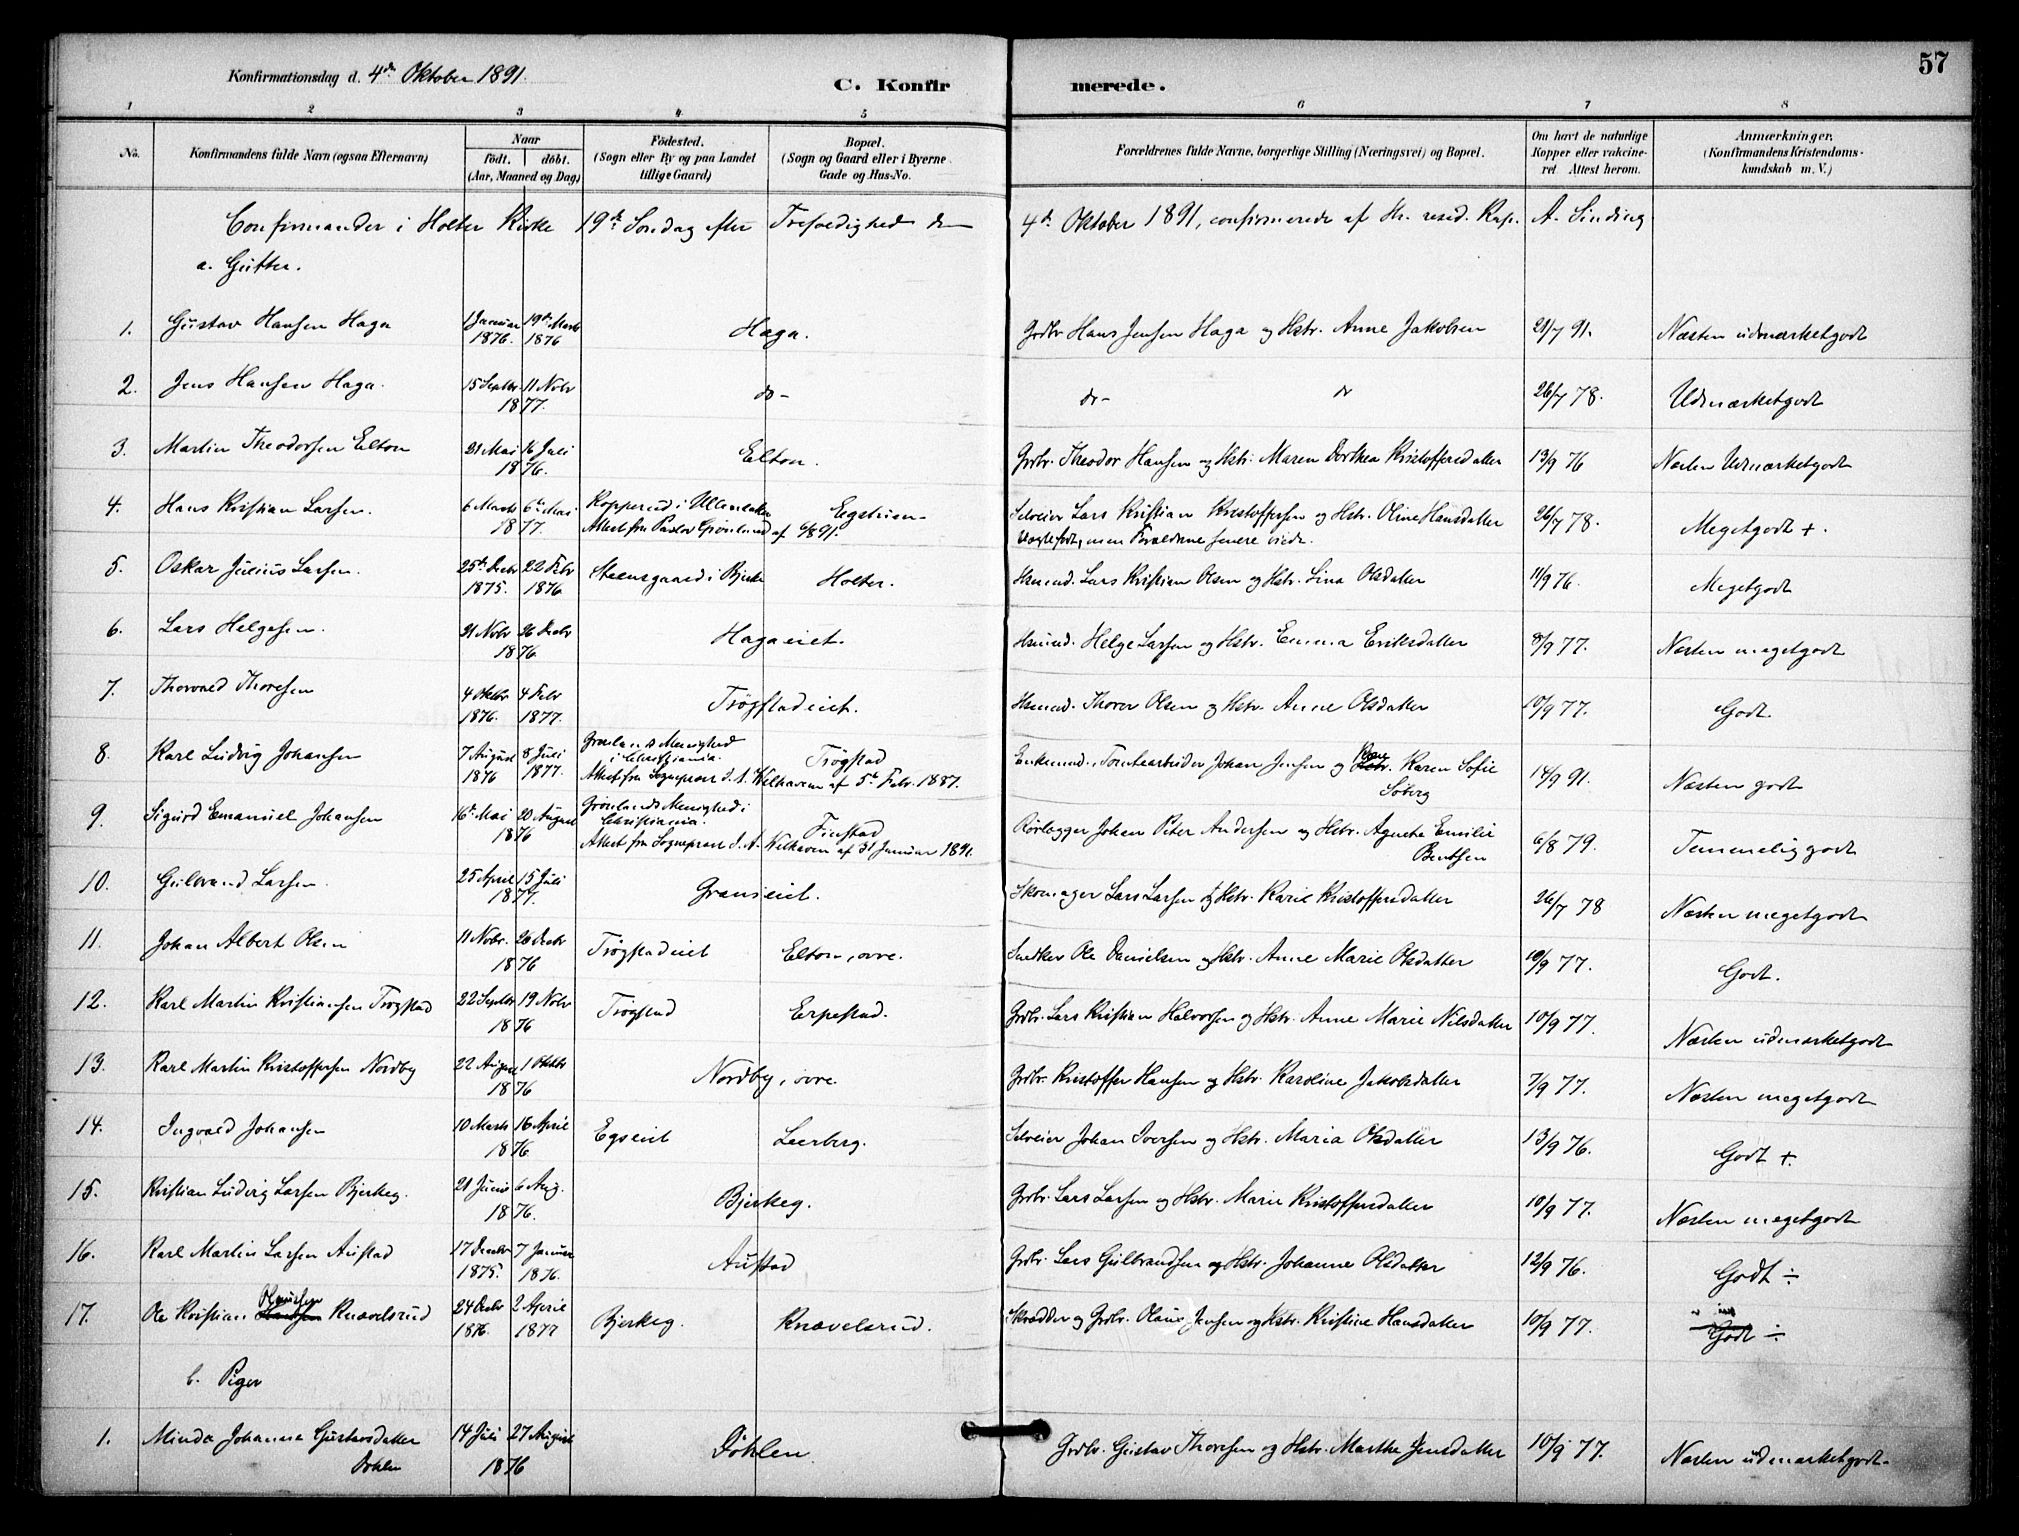 57
Konfirmationsdag d. 4de Oktober 1891.
C. Konfirmerede.
1 2 3 4 5 6 7 8
No. Konfirmandens fulde Navn (ogsaa Efternavn) Naar født. døbt. (Aar, Maaned og Dag) Fødested. (Sogn eller By og paa Landet tillige Gaard) Bopæl. (Sogn og Gaard eller i Byerne Gade og Hus-No. Forældrenes fulde Navne, borgerlige Stilling (Næringsvei) og Bopæl. Om havt de naturlige Kopper eller vakcineret Attest herom. Anmærkninger. (Konfirmandens Kristendomskundskab m. V.)
Confirmander i Holter Kirke 19de Søndag efter Trefoldighed den 4de Oktober 1891, confirmerede af Hr. resid. Kap. A. Sinding
a. Gutter.
1. Gustav Hansen Haga 1 Januar 1876. 19de Marts 1876 Haga. Grdbr. Hans Jensen Haga og Hstr. Anne Jakobsen 21/7 91. Næsten udmærketgodt
2. Jens Hansen Haga. 15 Septbr. 11 Novbr 1877. do - do - do 26/7 78. Udmærketgodt
3. Martin Theodorsen Elton 21 Mai 16 Juli 1876. Elton. Grdbr. Theodor Hansen og Hstr. Maren Dorthea Kristoffersdatter 13/9 76 Næsten Udmærketgodt
4. Hans Kristian Larsen. 6 Marts 6te Mai 1877. Kopperud i Ullensaker Attest fra Pastor Grønlund af 6/8 91. Egstuen- Selveier Lars Kristian Kristoffersen og Hstr. Oline Hansdatter Uægtefødt, men Forældrene senere viede. 26/7 78. Megetgodt +.
5. Oskar Julius Larsen. 25de Decbr 1875. 22 Febr 1876 Steensgaard i Bjerke Holter. Husmd. Lars Kristian Olsen og Hstr. Lina Olsdatter 11/9 76. Megetgodt
6. Lars Helgesen. 21 Novbr 26 Decbr 1876 Hagaeiet. Husmd. Helge Larsen og Hstr. Emma Eriksdatter 8/9 77. Næsten megetgodt
7. Thorvald Thoresen 4 Oktbr 1876. 4 Febr 1877. Trøgstadeiet. Husmd. Thorer Olsen og Hstr. Anne Olsdatter 10/9 77. Godt.
8. Karl Ludvig Johansen 7 August 1876 8 Juli 1877. Grønlands Menighed i Christiania. Attest fra Sogneprest J. A. Welhaven af 5te Febr. 1887. Trøgstad Enkemand, Tomtearbeider Johan Jensen og Hstr. Karen Sofie Søberg 14/9 91. Næsten godt
9. Sigurd Emanuel Johansen 16de Mai 20 August 1876 Grønlands Menighed i Christiania. Attest fra Sogneprest J. A. Welhaven af 31 Januar 1891. Finstad Rørlægger Johan Peter Andersen og Hstr. Agnete Emilie Bentsen 6/8 79. Temmelig godt
10. Gulbrand Larsen. 25 April 15 Juli 1877. Granseiet. Skomager Lars Larsen og Hstr. Karie Kristoffersdatter 26/7 78 Næsten megetgodt
11. Johan Albert Olsen 11 Novbr. 26 Decbr 1876 Trøgstadeiet Elton, øvre. Snedker Ole Danielsen og Hstr. Anne Marie Olsdatter 10/9 77. Godt.
12. Karl Martin Kristiansen Trøgstad 22 Septbr 19 Novbr 1876 Trøgstad Erpestad. Grdbr. Lars Kristian Halvorsen og Hstr. Anne Marie Nilsdatter 10/9 77. Næsten udmærketgodt
13. Karl Martin Kristoffersen Nordby 22 August 1 Oktbr 1876 Nordby, øvre. Grdbr. Kristoffer Hansen og Hstr. Karoline Jakobsdatter 7/9 77. Næsten megetgodt
14. Ingvald Johansen 10 Marts 16 April 1876. Egseiet Leerberg. Selveier Johan Iversen og Hstr. Maria Olsdatter 13/9 76. Godt +.
15. Kristian Ludvig Larsen Bjerkeg. 21 Juni 6 Aug. 1876. Bjerkeg. Grdbr. Lars Larsen og Hstr. Marie Kristoffersdatter 10/9 77. Næsten megetgodt
16. Karl Martin Larsen Austad 17 Decbr 1875. 7 Januar 1876. Austad Grdbr. Lars Gulbrandsen og Hstr. Johanne Olsdatter 12/9 76. Godt ÷
17. Ole Kristian Olaussen Knævelsrud 24 Decbr 1876. 2 April 1877 Bjerkeg. Knævelsrud. Skrædder og Grdbr. Olaus Jensen og Hstr. Kristine Hansdatter 10/9 77. Godt ÷
b. Piger
1. Minda Johanna Gustavsdatter Døhlen 14 Juli 27 August 1876 Døhlen Grdbr. Gustav Thoresen og Hstr. Marthe Jensdatter 10/9 77. Næsten udmærketgodt-